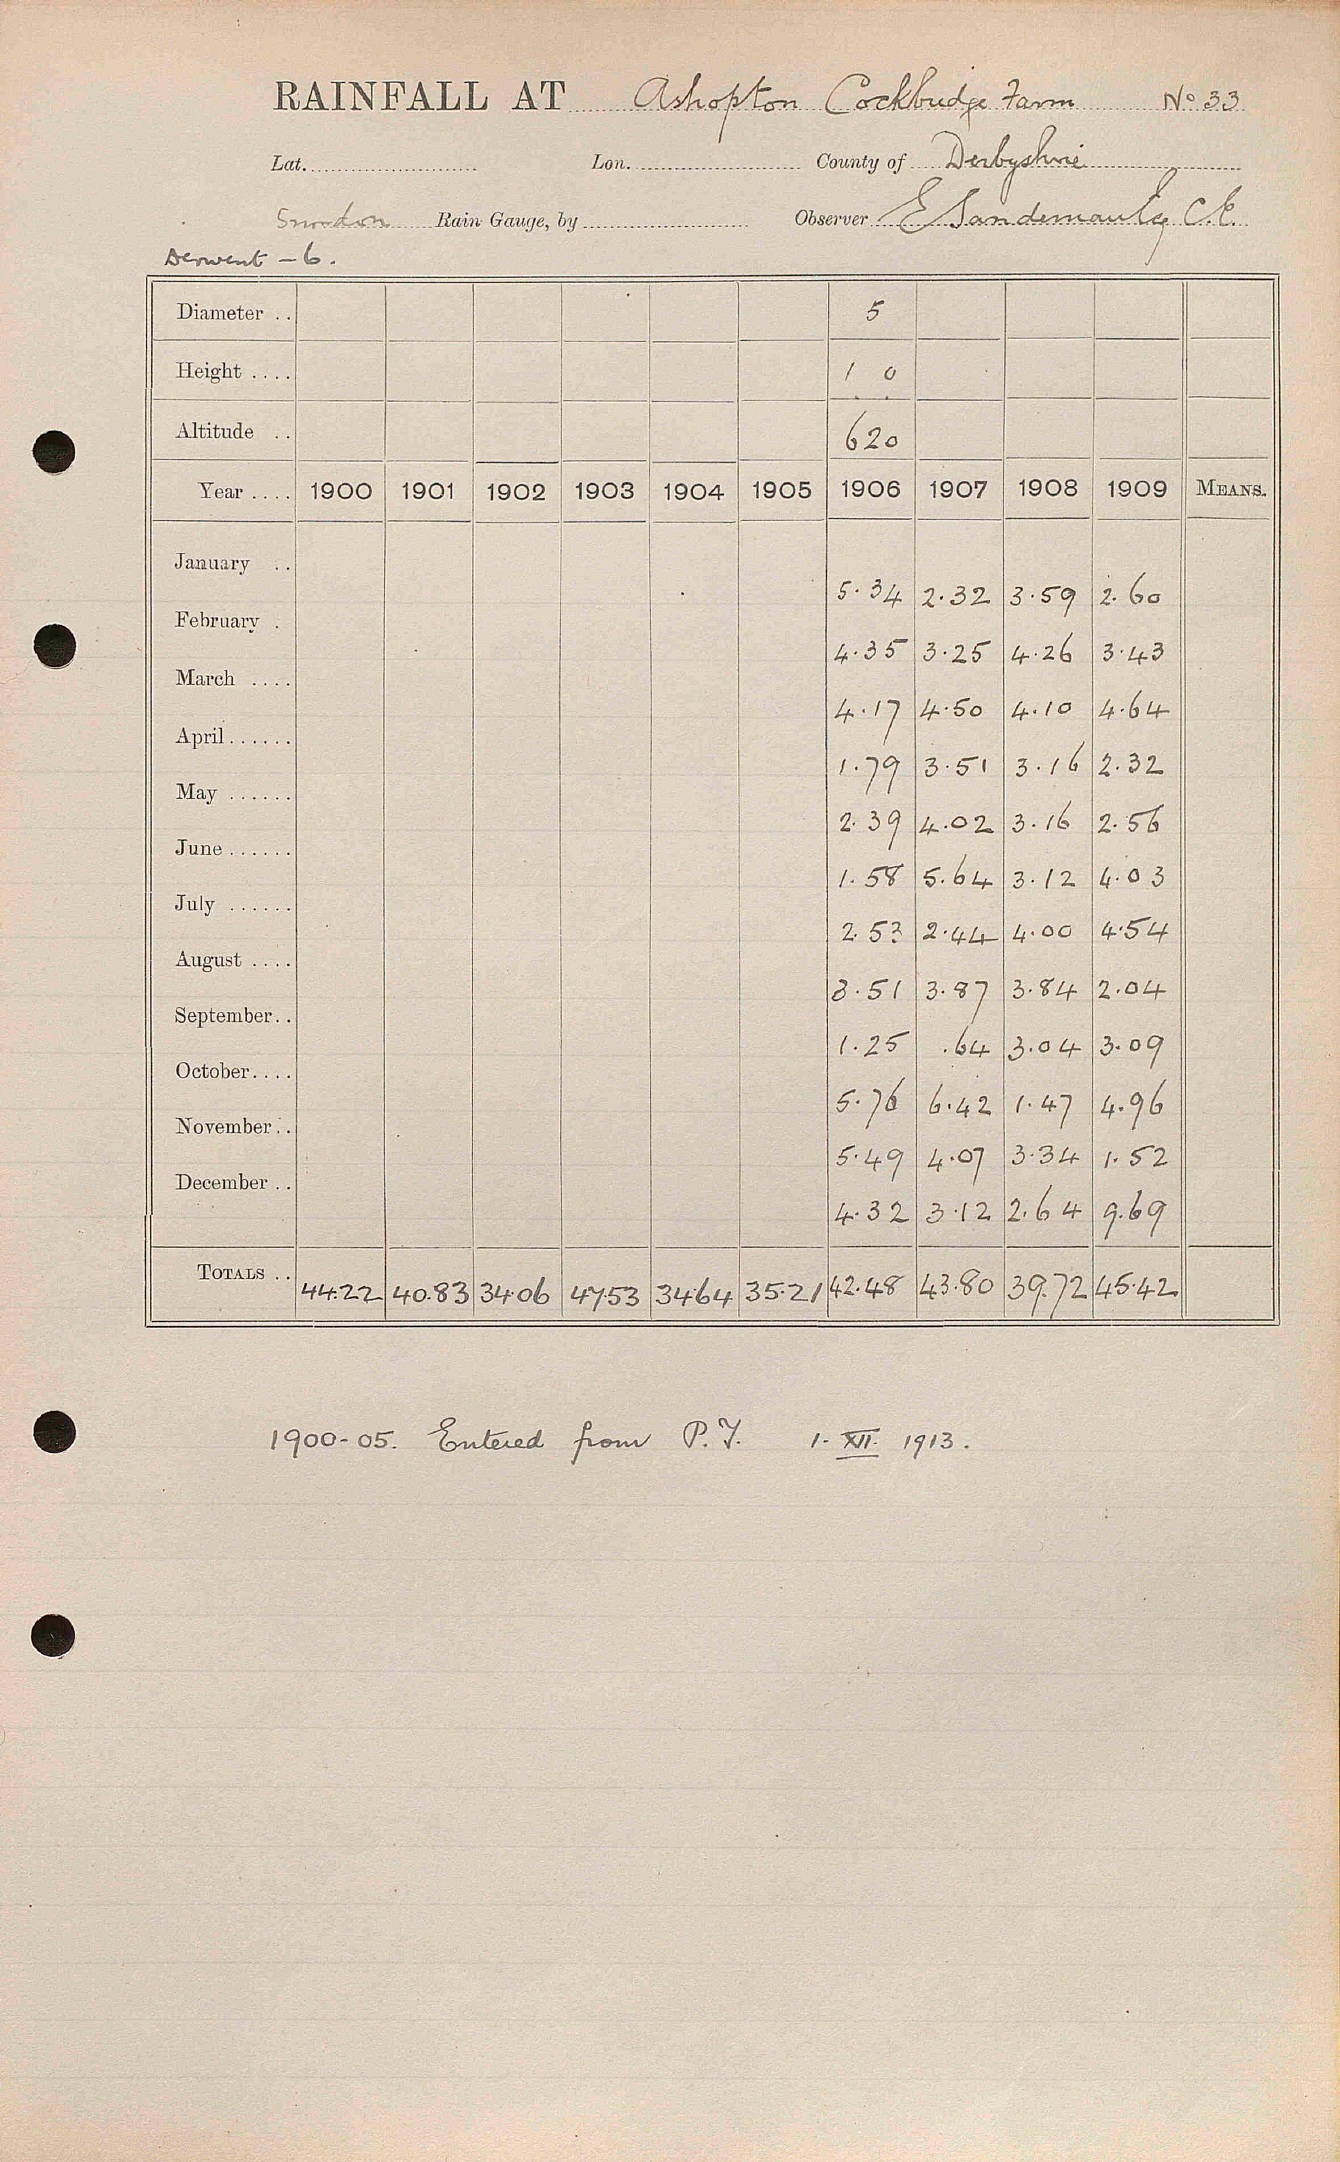 RAINFALL AT Ashopton Cockbridge Farm No 33
Lat. Lon. County of Derbyshire
Snowdon Rain Gauge, by Observer E Sandeman Esq C.E.
Derwent - 6.
Diameter .. 5
Height .... 1 0
Altitude .. 620
Year .... 1900 1901 1902 1903 1904 1905 1906 1907 1908 1909 MEANS.
January .. 5.34 2.32 3.59 2.60
February . 4.35 3.25 4.26 3.43
March .... 4.17 4.50 4.10 4.64
April ...... 1.79 3.51 3.16 2.32
May ...... 2.39 4.02 3.16 2.56
June ...... 1.58 5.64 3.12 4.03
July ...... 2.53 2.44 4.00 4.54
August .... 3.51 3.87 3.84 2.04
September .. 1.25 .64 3.04 3.09
October .... 5.76 6.42 1.47 4.96
November .. 5.49 4.07 3.34 1.52
December .. 4.32 3.12 2.64 9.69
TOTALS .. 44.22 40.83 34.06 47.53 34.64 35.21 42.48 43.80 39.72 45.42
1900-05. Entered from P.T. 1. XII. 1913.